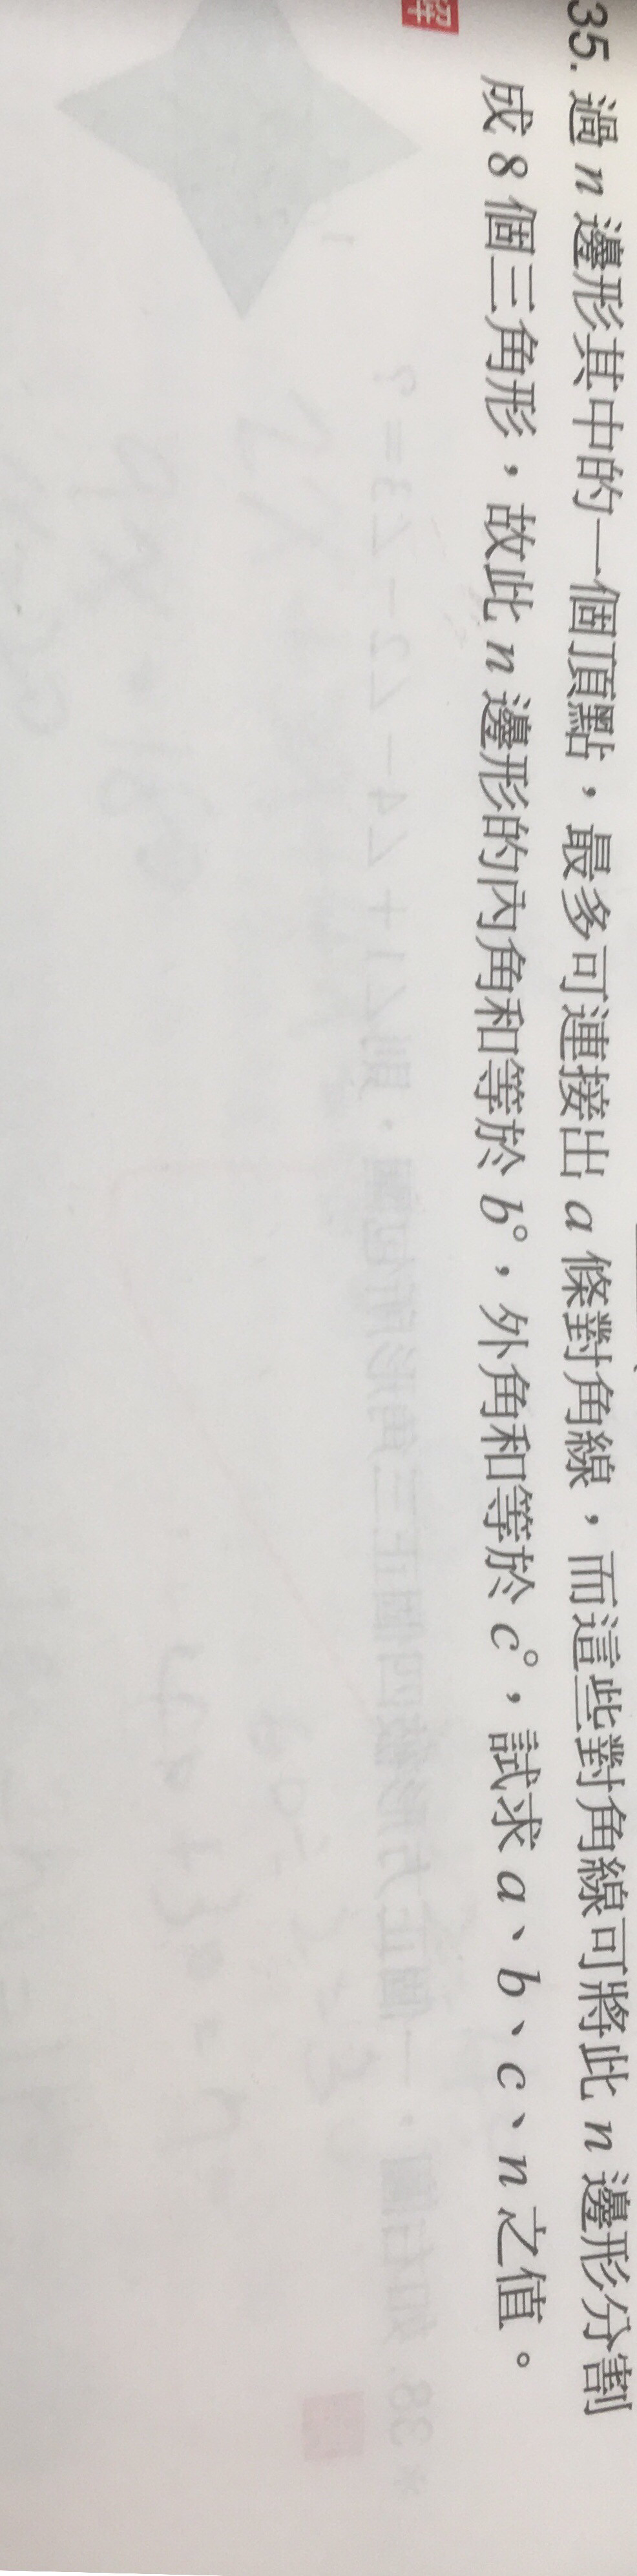 35. 過 n 邊形其中的一個頂點，最多可連接出 a 條對角線，而這些對角線可將此 n 邊形分割
成 8 個三角形，故此 n 邊形的內角和等於 b°，外角和等於 c°，試求 a、b、c、n 之值。
解